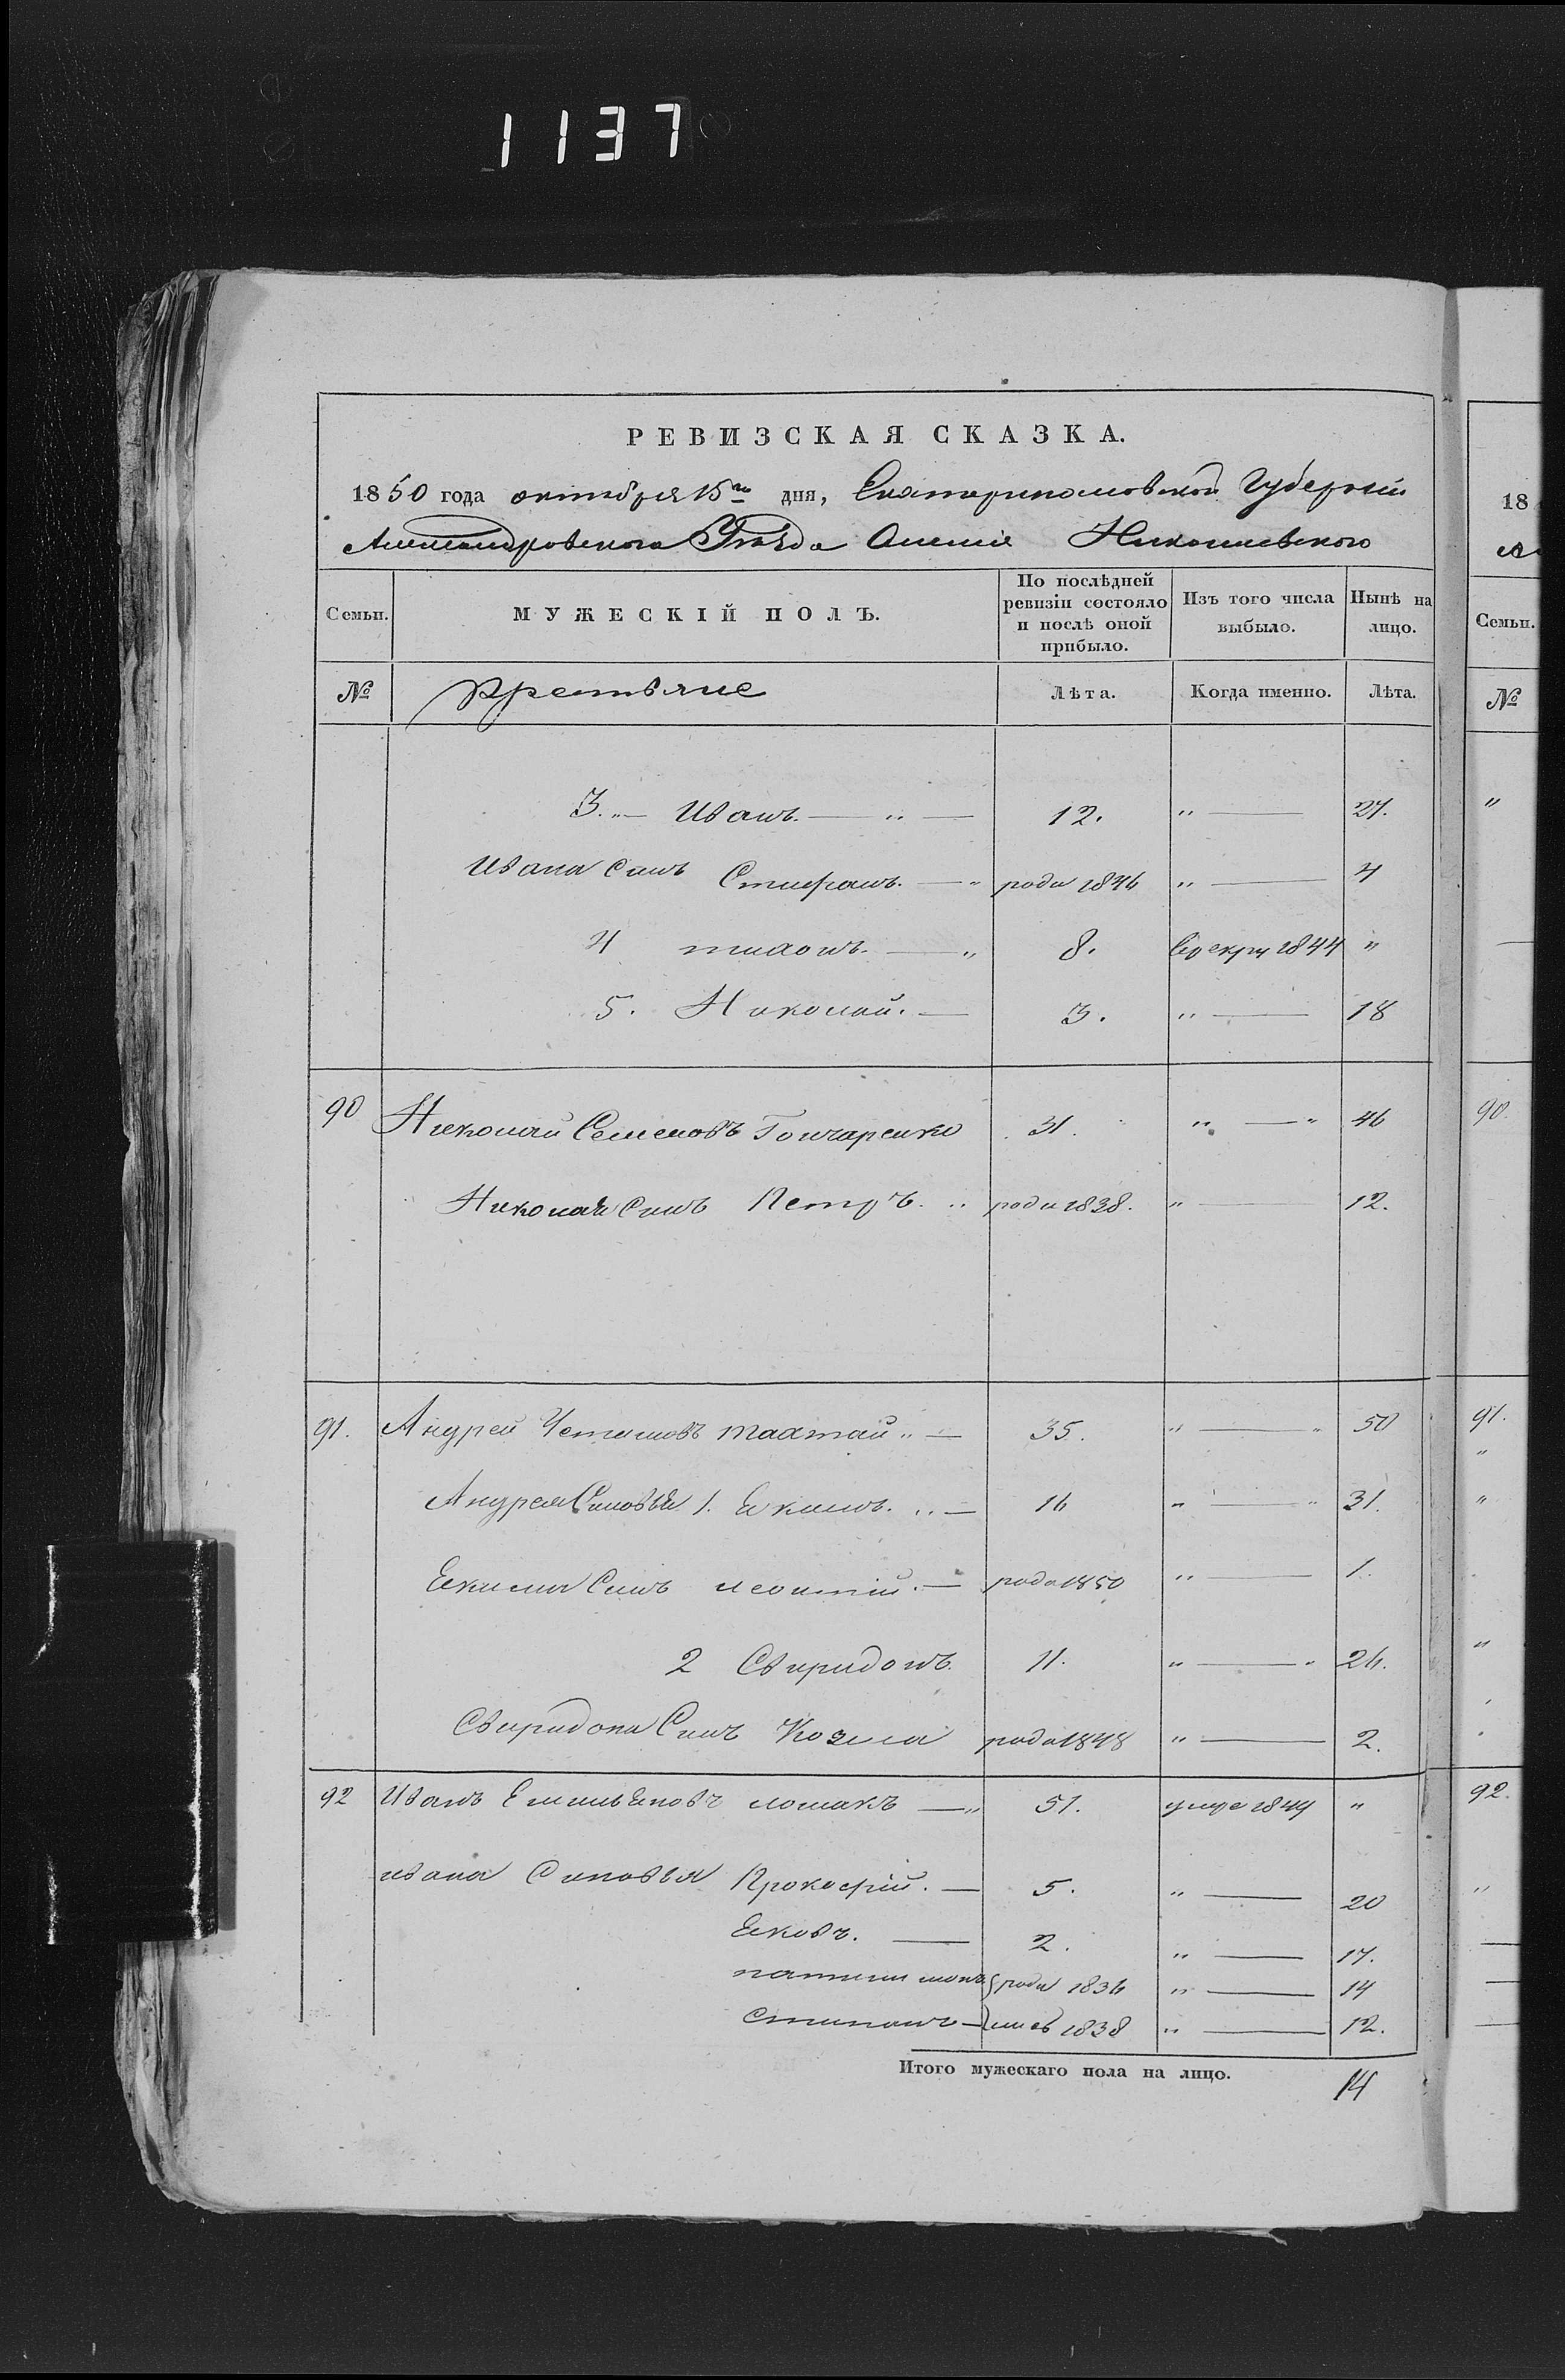 1137
РЕВИЗСКАЯ СКАЗКА.
1850 года октября 15го дня, Екатеринославской Губернии
Александровского Уѣзда Николаевского
Семьи. МУЖЕСКІЙ ПОЛЪ. По послѣдней ревизіи состояло и послѣ оной прибыло. Изъ того числа выбыло. Нынѣ на лицо.
№ Крестьяне Лѣта. Когда именно. Лѣта.
3. Иванъ. 12. " 27.
Ивана Синъ Стефанъ. рода 1846 " 4
4 тихонъ. 8. 1844 "
5. Николай. 3. " 18
90 Николай Семеновъ Гончаренко 31. " 46
Николая Синъ Петръ. рода 1838. " 12.
91. Андрей тахтай 35. " 50
Андрея Синовья 1. Екимъ. 16 " 31.
Екима Синъ леонтій. рода 1850 " 1.
2 Свиридонъ. 11. " 26.
Свиридона Синъ Козма рода 1848 " 2.
92 Иванъ Емельяновъ лошакъ 51. умре 1849 "
ивана Синовья Прокофій. 5. " 20
Яковъ. 2. " 17.
рода 1836 " 14
Степанъ 1838 " 12.
Итого мужескаго пола на лицо. 14
18
Семьи.
№
"
90.
91.
"
"
"
92.
"